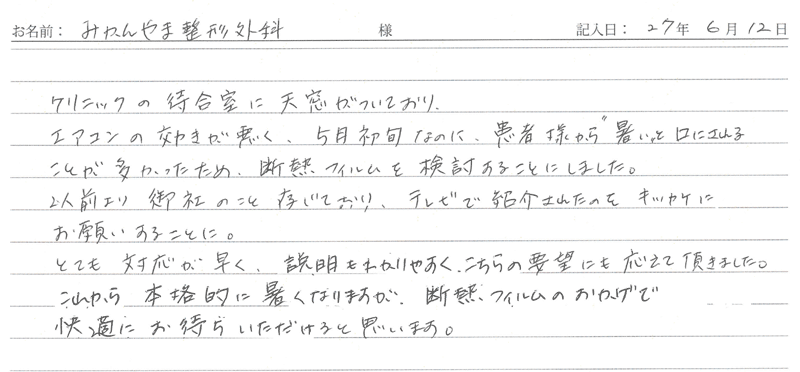 お名前: みかんやま整形外科 様 記入日: 27年 6月 12日
クリニックの待合室に天窓がついており、
エアコンの効きが悪く、5月初旬なのに、患者様から"暑い"と口にされる
ことが多かったため、断熱フィルムを検討することにしました。
以前より御社のこと存じており、テレビで紹介されたのをキッカケに
お願いすることに。
とても対応が早く、説明もわかりやすく、こちらの要望にも応えて頂きました。
これから本格的に暑くなりますが、断熱フィルムのおかげで
快適にお待ちいただけると思います。